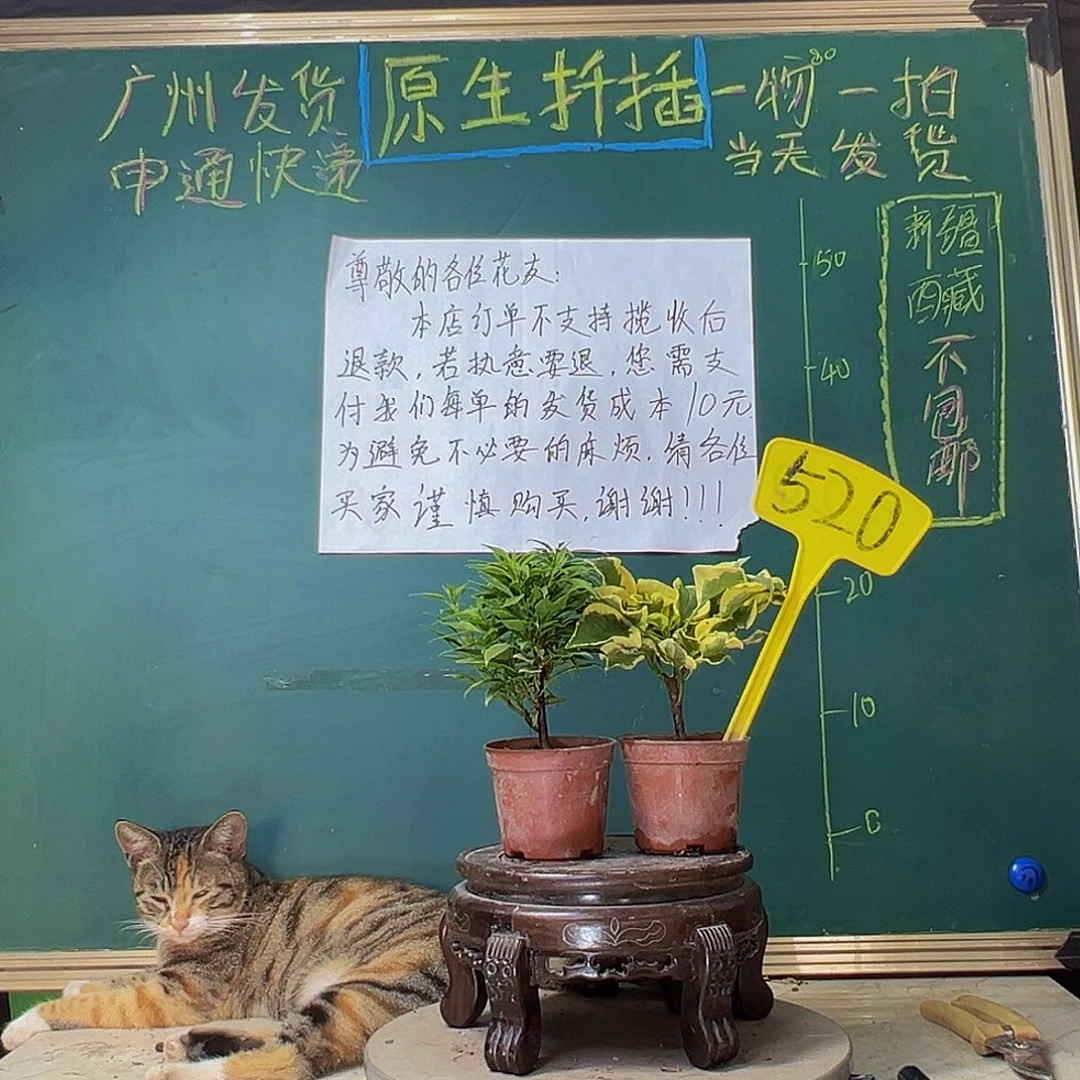 广州发货
申通快递
原生扦插
一物一拍
当天发货
新疆
西藏
不
包
邮
尊敬的各位花友:
本店订单不支持揽收后
退款,若执意要退,您需支
付我们每单的发货成本10元.
为避免不必要的麻烦.请各位
买家谨慎购买,谢谢!!!
520
50
40
20
10
0